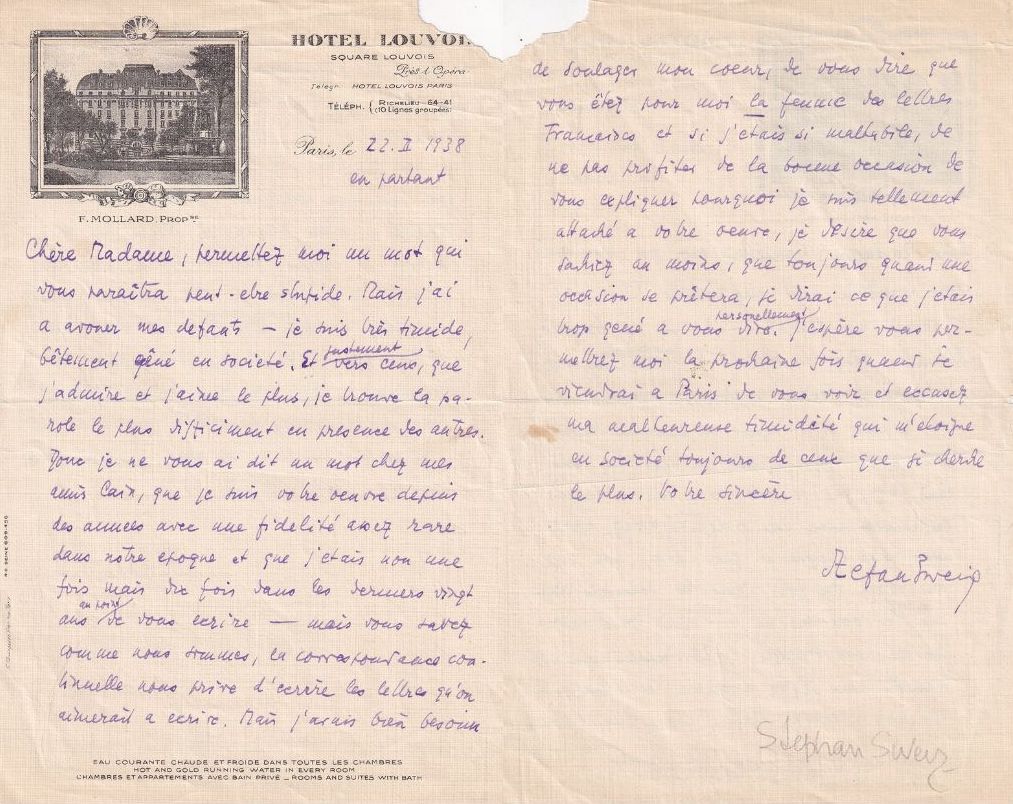 HOTEL LOUVOI
SQUARE LOUVOIS
Près l'Opéra
Télégr HOTEL LOUVOIS PARIS
TÉLÉPH. { RICHELIEU 64-41
(10 Lignes groupées)
Paris, le 22. II 1938
en partant
F. MOLLARD, PROP RE.
Chère Madame, permettez moi un mot qui
vous paraîtra peut-etre stupide. Mais j'ai
a avouer mes defauts — je suis très timide,
bêtement gêné en societé. Et justement vers ceux, que
j'admire et j'aime le plus, je trouve la pa-
role le plus difficiment en presence des autres.
Donc je ne vous ai dit un mot chez mes
amis Cain, que je suis votre oeuvre depuis
des années avec une fidelité assez rare
dans notre epoque et que j'etais non une
fois mais dix fois dans les derniers vingt
ans au point de vous ecrire — mais vous savez
comme nous sommes, la correspondance con-
tinuelle nous prive d'ecrire les lettres qu'on
aimerait a ecrire. Mais j'avais bien besoin
EAU COURANTE CHAUDE ET FROIDE DANS TOUTES LES CHAMBRES
HOT AND COLD RUNNING WATER IN EVERY ROOM
CHAMBRES ET APPARTEMENTS AVEC BAIN PRIVÉ _ ROOMS AND SUITES WITH BATH
de soulager mon coeur, de vous dire que
vous êtez pour moi la femme des lettres
Francaises et si j'etais si malhabile, de
ne pas profiter de la bonne occasion de
vous expliquer pourquoi je suis tellement
attaché a votre oeuvre, je désire que vous
sachiez au moins, que toujours quand une
occasion se prêtera, je dirai ce que j'etais
trop gené a vous dire personellement. J'espère vous per-
mettrez moi la prochaine fois quand je
viendrai a Paris de vous voir et excusez
ma malheureuse timidité qui m'eloigne
en societé toujours de ceux que je cherche
le plus. Votre sincère
Stefan Zweig
Stephan Sweig